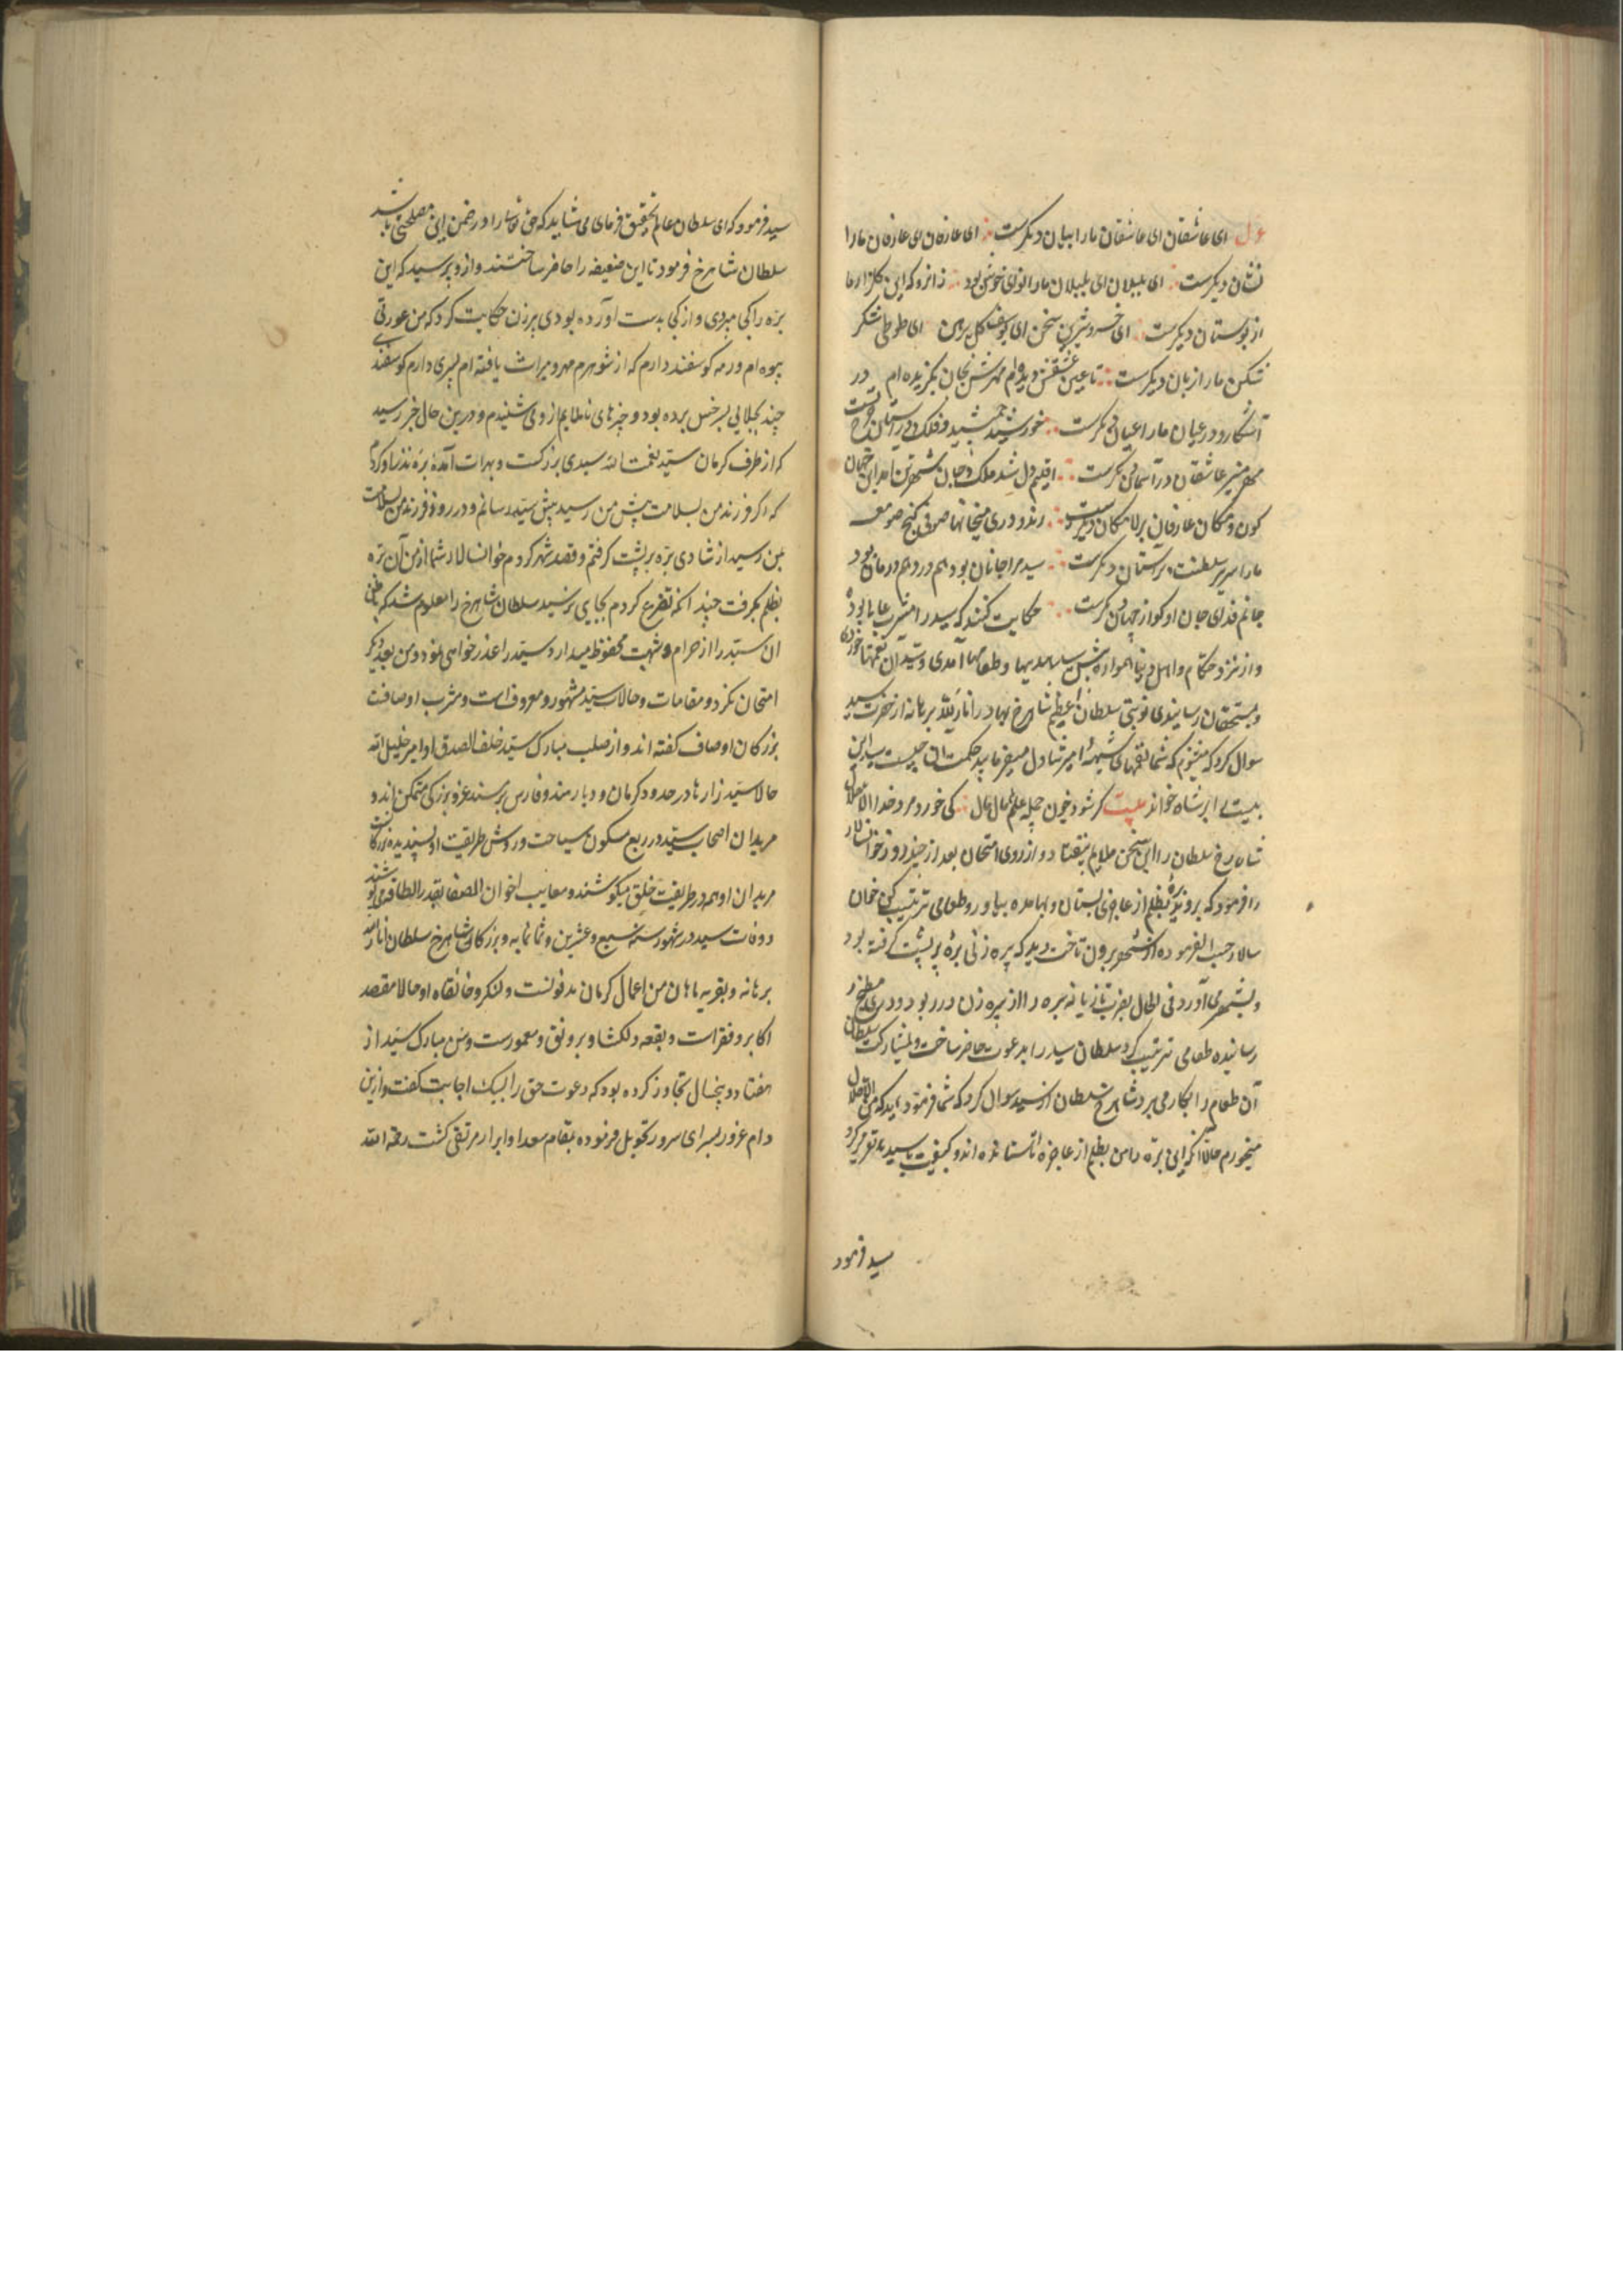 غزل ای عاشقان ای عاشقان ما را بیان دیکرست ای عارفان ای عارفان ما را
نشان دیکرست ای بلبلان ای بلبلان ما را نوای خوش بود زانرو که این کلزار ما
از بوستان دیکرست ای خسرو شیرین سخن ای یوسف کل پیرهن ای طوطی شکر
شکن ما را زبان دیکرست تا عین عشقش دیده‌ام مهرش بجان بکزیده‌ام در
آشکار و در عیان ما را عیان دیکرست خورشید جمشید فلک
مهر منیر عاشقان در آسمان دیکرست اقلیم دل شد ملک جان شهر تن آمد این جهان
کون و مکان عارفان بر لامکان دیکرست رند و در میخانها صوفی و کنج صومعه
ما را سریر سلطنت بر آستان دیکرست سید مرا جانان بود هم درد و هم درمان بود
جانم فدای جان او کو از جهان دیکرست حکایت کنند که سید را مشرب عالی بوده
و از نزد حکام و اهل دنیا همواره پیش سید هدیها و طعامها آمدی و سید آن لقمها خوردی
و بمستحقان رسانیدی نوبتی سلطان اعظم شاهرخ بهادر انار الله برهانه از حضرت سید
سوال کرد که میشنوم که شما لقمهای شبهه آمیز تناول میفرمایید حکمت آن چیست سید این
بیت بر شاه خواند بیت کر شود خون جمله عالم مال مال کی خورد مرد خدا الا حلال
شاه رخ سلطان را این سخن ملایم نیفتاد و از روی امتحان بعد از چند روز خوانسالار
را فرمود که برو بره بظلم از عاجزی بستان و بها مده بیاور و طعامی ترتیب کن خوان
سالار حسب الفرموده از شهر بیرون تاخت دید که پیره زنی بره بر پشت کرفته بود
و بشهر می‌آورد فی الحال بضرب تازیانه بره را از پیره زن در ربود و در مطبخ
رسانیده طعامی ترتیب کرد سلطان سید را بدعوت حاضر ساخت و بمشارکت سلطان
آن طعام را بکار می‌برد شاهرخ سلطان از سید سوال کرد که شما فرموده‌اید که من الا حلال
نمیخورم حالا آنکه این بره را من بظلم از عاجزه استانده‌اند و کیفیت با سید تقریر کرد
سید فرمود
سید فرمود که ای سلطان عالم تحقیق فرمای می‌شاید که حق تعالی را در ضمن این مصلحتی باشد
سلطان شاهرخ فرمود تا این ضعیفه را حاضر ساختند و از و پرسید که این
بره را کجا میبردی و از کجا بدست آورده بودی پیرزن حکایت کرد که من عورتی
بیوه‌ام و رمه کوسفند دارم که از شوهرم مهر و میراث یافته‌ام پسری دارم کوسفند
چند بجلابی بسرخس برده بود و خبرهای ناملایم از وی شنیدم و درین حال خبر رسید
که از طرف کرمان سید نعمت الله سیدی بزرکست و بهرات آمده بره نذر او کردم
که اکر فرزند من بسلامت پیش من رسید پیش سید رسانم و در روز فرزند من بسلامت
بمن رسید از شادی بره بر پشت کرفتم و قصد شهر کردم خوانسالار شما از من آن بره
بظلم بکرفت چندانکه تضرع کردم بجای نرسید سلطان شاهرخ را معلوم شد که
آن سید را از حرام و شبهت محفوظ میدارد سید را عذرخواهی نمود و من بعد دیکر
امتحان نکرد و مقامات و حالات سید مشهور و معروفست و مشرب او صافست
بزرکان اوصاف کفته‌اند و از صلب مبارک سید خلف الصدق او امیر خلیل الله
حالا سید زاده‌ها در حدود کرمان و دیار هند و فارس بر مسند عز و بزرکی متمکن‌اند و
مریدان اصحاب سید در ربع مسکون سیاحت و روش طریقت او پسندیده بزرکان
مریدان او همه در طریقت خلق میکوشند و معایب اخوان الصفا بقدر الطاقه می‌پوشند
و وفات سید در شهور سنه سبع و عشرین و ثمانمایه و بزرکان شاهرخ سلطان انار الله
برهانه و بقریه ماهان من اعمال کرمان مدفونست و لنکر و خانقاه او حالا مقصد
اکابر و فقراست و بقعه دلکشا و برونق و معمورست و سن مبارک سید از
هفتاد و پنجسال تجاوز کرده بود که دعوت حق را لبیک اجابت کفت و از این
دام غرور بسرای سرور تحویل فرموده بمقام سعدا و ابرار مرتقی کشت رحمه الله